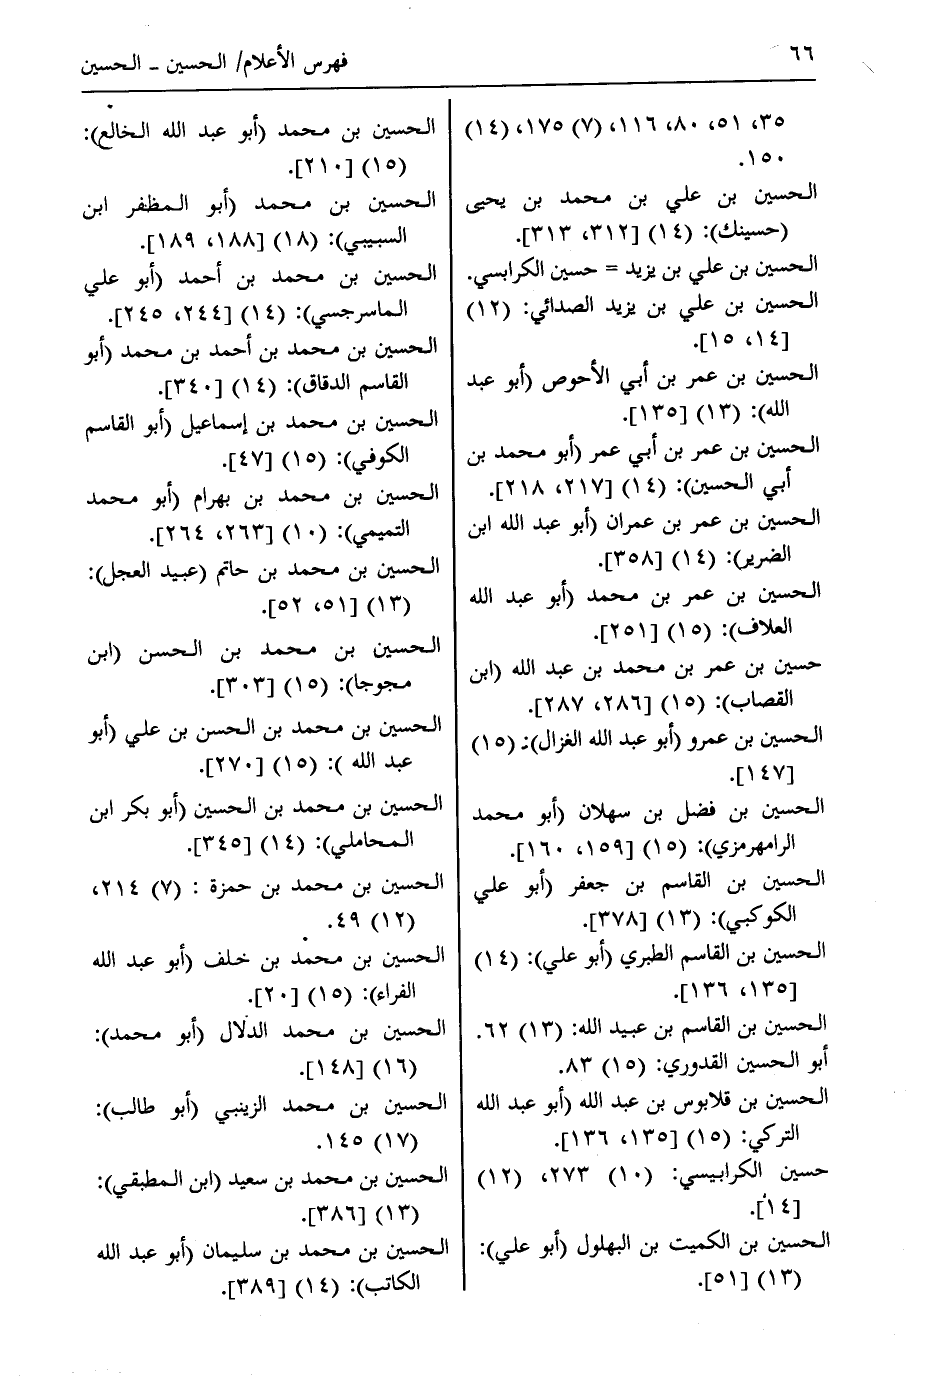 ٦٦
فهرس الأعلام/ الحسين - الحسين
٣٥، ٥١، ٨٠، ١١٦، (٧) ١٧٥، (١٤)
١٥٠.
الحسين بن علي بن محمد بن يحيى
(حسينك): (١٤) [٣١٢، ٣١٣].
الحسين بن علي بن يزيد = حسين الكرابسي.
الحسين بن علي بن يزيد الصدائي: (١٢)
[١٤، ١٥].
الحسين بن عمر بن أبي الأحوص (أبو عبد
الله): (١٣) [١٣٥].
الحسين بن عمر بن أبي عمر (أبو محمد بن
أبي الحسين): (١٤) [٢١٧، ٢١٨].
الحسين بن عمر بن عمران (أبو عبد الله ابن
الضرير): (١٤) [٣٥٨].
الحسين بن عمر بن محمد (أبو عبد الله
العلاف): (١٥) [٢٥١].
حسين بن عمر بن محمد بن عبد الله (ابن
القصاب): (١٥) [٢٨٦، ٢٨٧].
الحسين بن عمرو (أبو عبد الله الغزال): (١٥)
[١٤٧].
الحسين بن فضل بن سهلان (أبو محمد
الرامهرمزي): (١٥) [١٥٩، ١٦٠].
الحسين بن القاسم بن جعفر (أبو علي
الكوكبي): (١٣) [٣٧٨].
الحسين بن القاسم الطبري (أبو علي): (١٤)
[١٣٥، ١٣٦].
الحسين بن القاسم بن عبيد الله: (١٣) ٦٢.
أبو الحسين القدوري: (١٥) ٨٣.
الحسين بن قلابوس بن عبد الله (أبو عبد الله
التركي: (١٥) [١٣٥، ١٣٦].
حسين الكرابيسي: (١٠) ٢٧٣، (١٢)
[١٤].
الحسين بن الكميت بن البهلول (أبو علي):
(١٣) [٥١].
الحسين بن محمد (أبو عبد الله الخالع):
(١٥) [٢١٠].
الحسين بن محمد (أبو المظفر ابن
السبيبي): (١٨) [١٨٨، ١٨٩].
الحسين بن محمد بن أحمد (أبو علي
الماسرجسي): (١٤) [٢٤٤، ٢٤٥].
الحسين بن محمد بن أحمد بن محمد (أبو
القاسم الدقاق): (١٤) [٣٤٠].
الحسين بن محمد بن إسماعيل (أبو القاسم
الكوفي): (١٥) [٤٧].
الحسين بن محمد بن بهرام (أبو محمد
التميمي): (١٠) [٢٦٣، ٢٦٤].
الحسين بن محمد بن حاتم (عبيد العجل):
(١٣) [٥١، ٥٢].
الحسين بن محمد بن الحسن (ابن
مجوجا): (١٥) [٣٠٣].
الحسين بن محمد بن الحسن بن علي (أبو
عبد الله ): (١٥) [٢٧٠].
الحسين بن محمد بن الحسين (أبو بكر ابن
المحاملي): (١٤) [٣٤٥].
الحسين بن محمد بن حمزة : (٧) ٢١٤،
(١٢) ٤٩.
الحسين بن محمد بن خلف (أبو عبد الله
الفراء): (١٥) [٢٠].
الحسين بن محمد الدلال (أبو محمد):
(١٦) [١٤٨].
الحسين بن محمد الزينبي (أبو طالب):
(١٧) ١٤٥.
الحسين بن محمد بن سعيد (ابن المطبقي):
(١٣) [٣٨٦].
الحسين بن محمد بن سليمان (أبو عبد الله
الكاتب): (١٤) [٣٨٩].